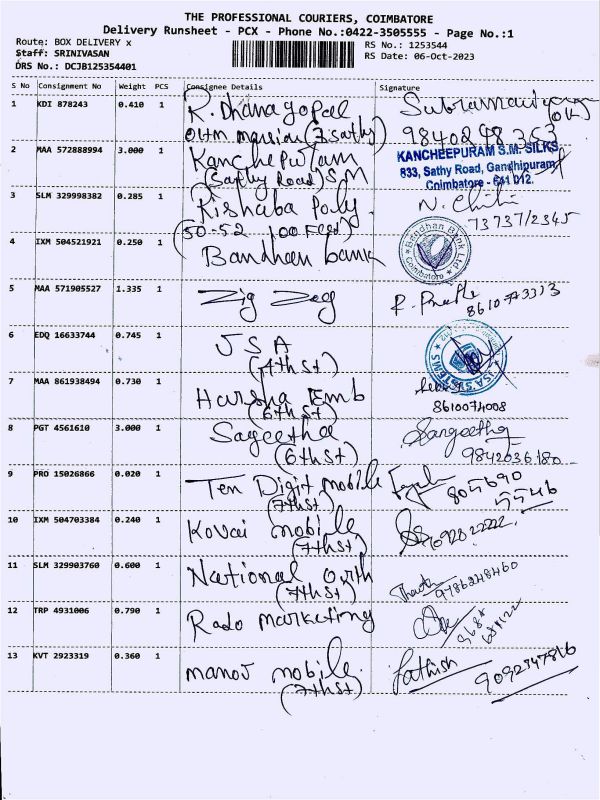 THE PROFESSIONAL COURIERS, COIMBATORE
Delivery Runsheet - PCX - Phone No.:0422-3505555 - Page No.:1
Route: BOX DELIVERY x
RS No.: 1253544
Staff: SRINIVASAN
RS Date: 06-Oct-2023
DRS No.: DCJB125354401
S No Consignment No Weight PCS Consignee Details Signature
1 KDI 878243 0.410 1 R. Dhanagopal
(7 Sathy) 9840848353
2 MAA 572888994 3.000 1 Kanchepuram
(Sathy Road) S.M
KANCHEEPURAM S.M. SILKS
833, Sathy Road, Gandhipuram,
Coimbatore - 641 012.
3 SLM 329998382 0.285 1 Rishaba Poly.
(50-52 100 Feet) 7373712345
4 IXM 504521921 0.250 1 Bandhan bank
Bandhan Bank Ltd
Coimbatore
5 MAA 571905527 1.335 1 Zig Zag
6 EDQ 16633744 0.745 1 JSA
(4th St)
JSA SYSTEMS
7 MAA 861938494 0.730 1 Harsha Emb
(6th St) 8610074008
8 PGT 4561610 3.000 1 Sageetha Sangeetha
(6th St) 9842036180
9 PRO 15026866 0.020 1 Ten Digit mobile
(7th St)
10 IXM 504703384 0.240 1 Kovai mobile
(7th St)
11 SLM 329903760 0.600 1 National Orth
(7th St) 9786248460
12 TRP 4931006 0.790 1 Rado marketing
13 KVT 2923319 0.360 1 manoj mobile. Sathish
(7th St) 9092347816